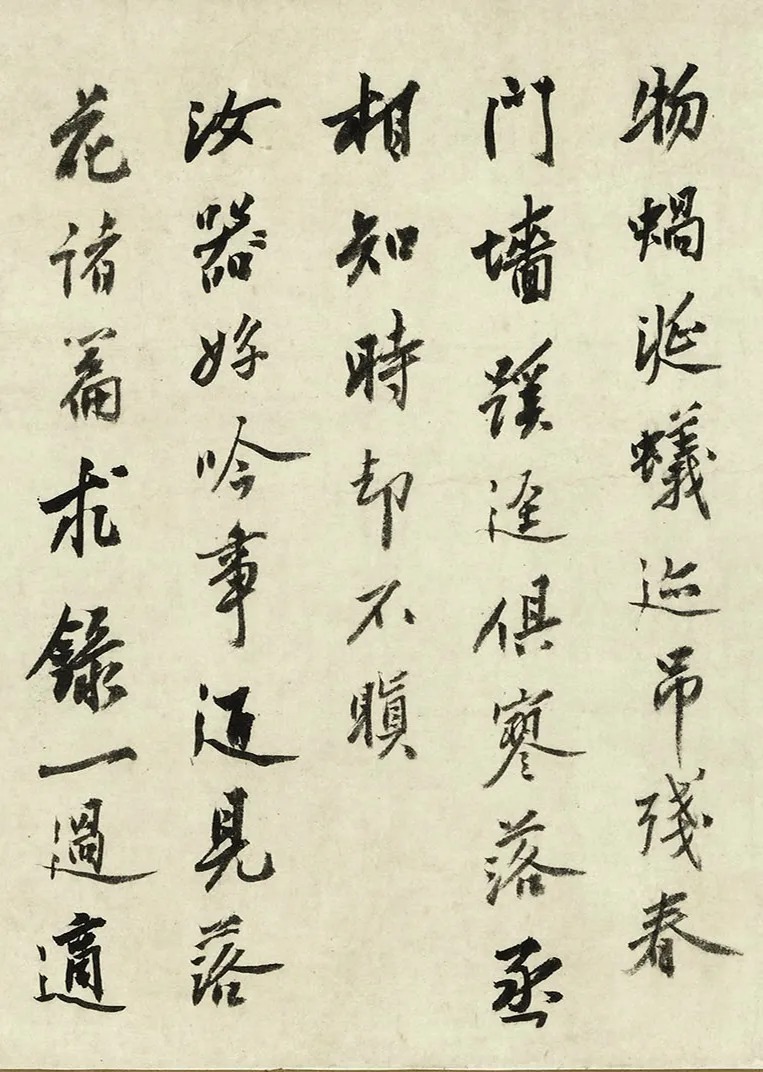 物蝸涎蟻迹吊殘春
門墻蹊逕俱寥落丞
相知時却不瞋
汝器好吟事迺見落
花諸篇求錄一過適